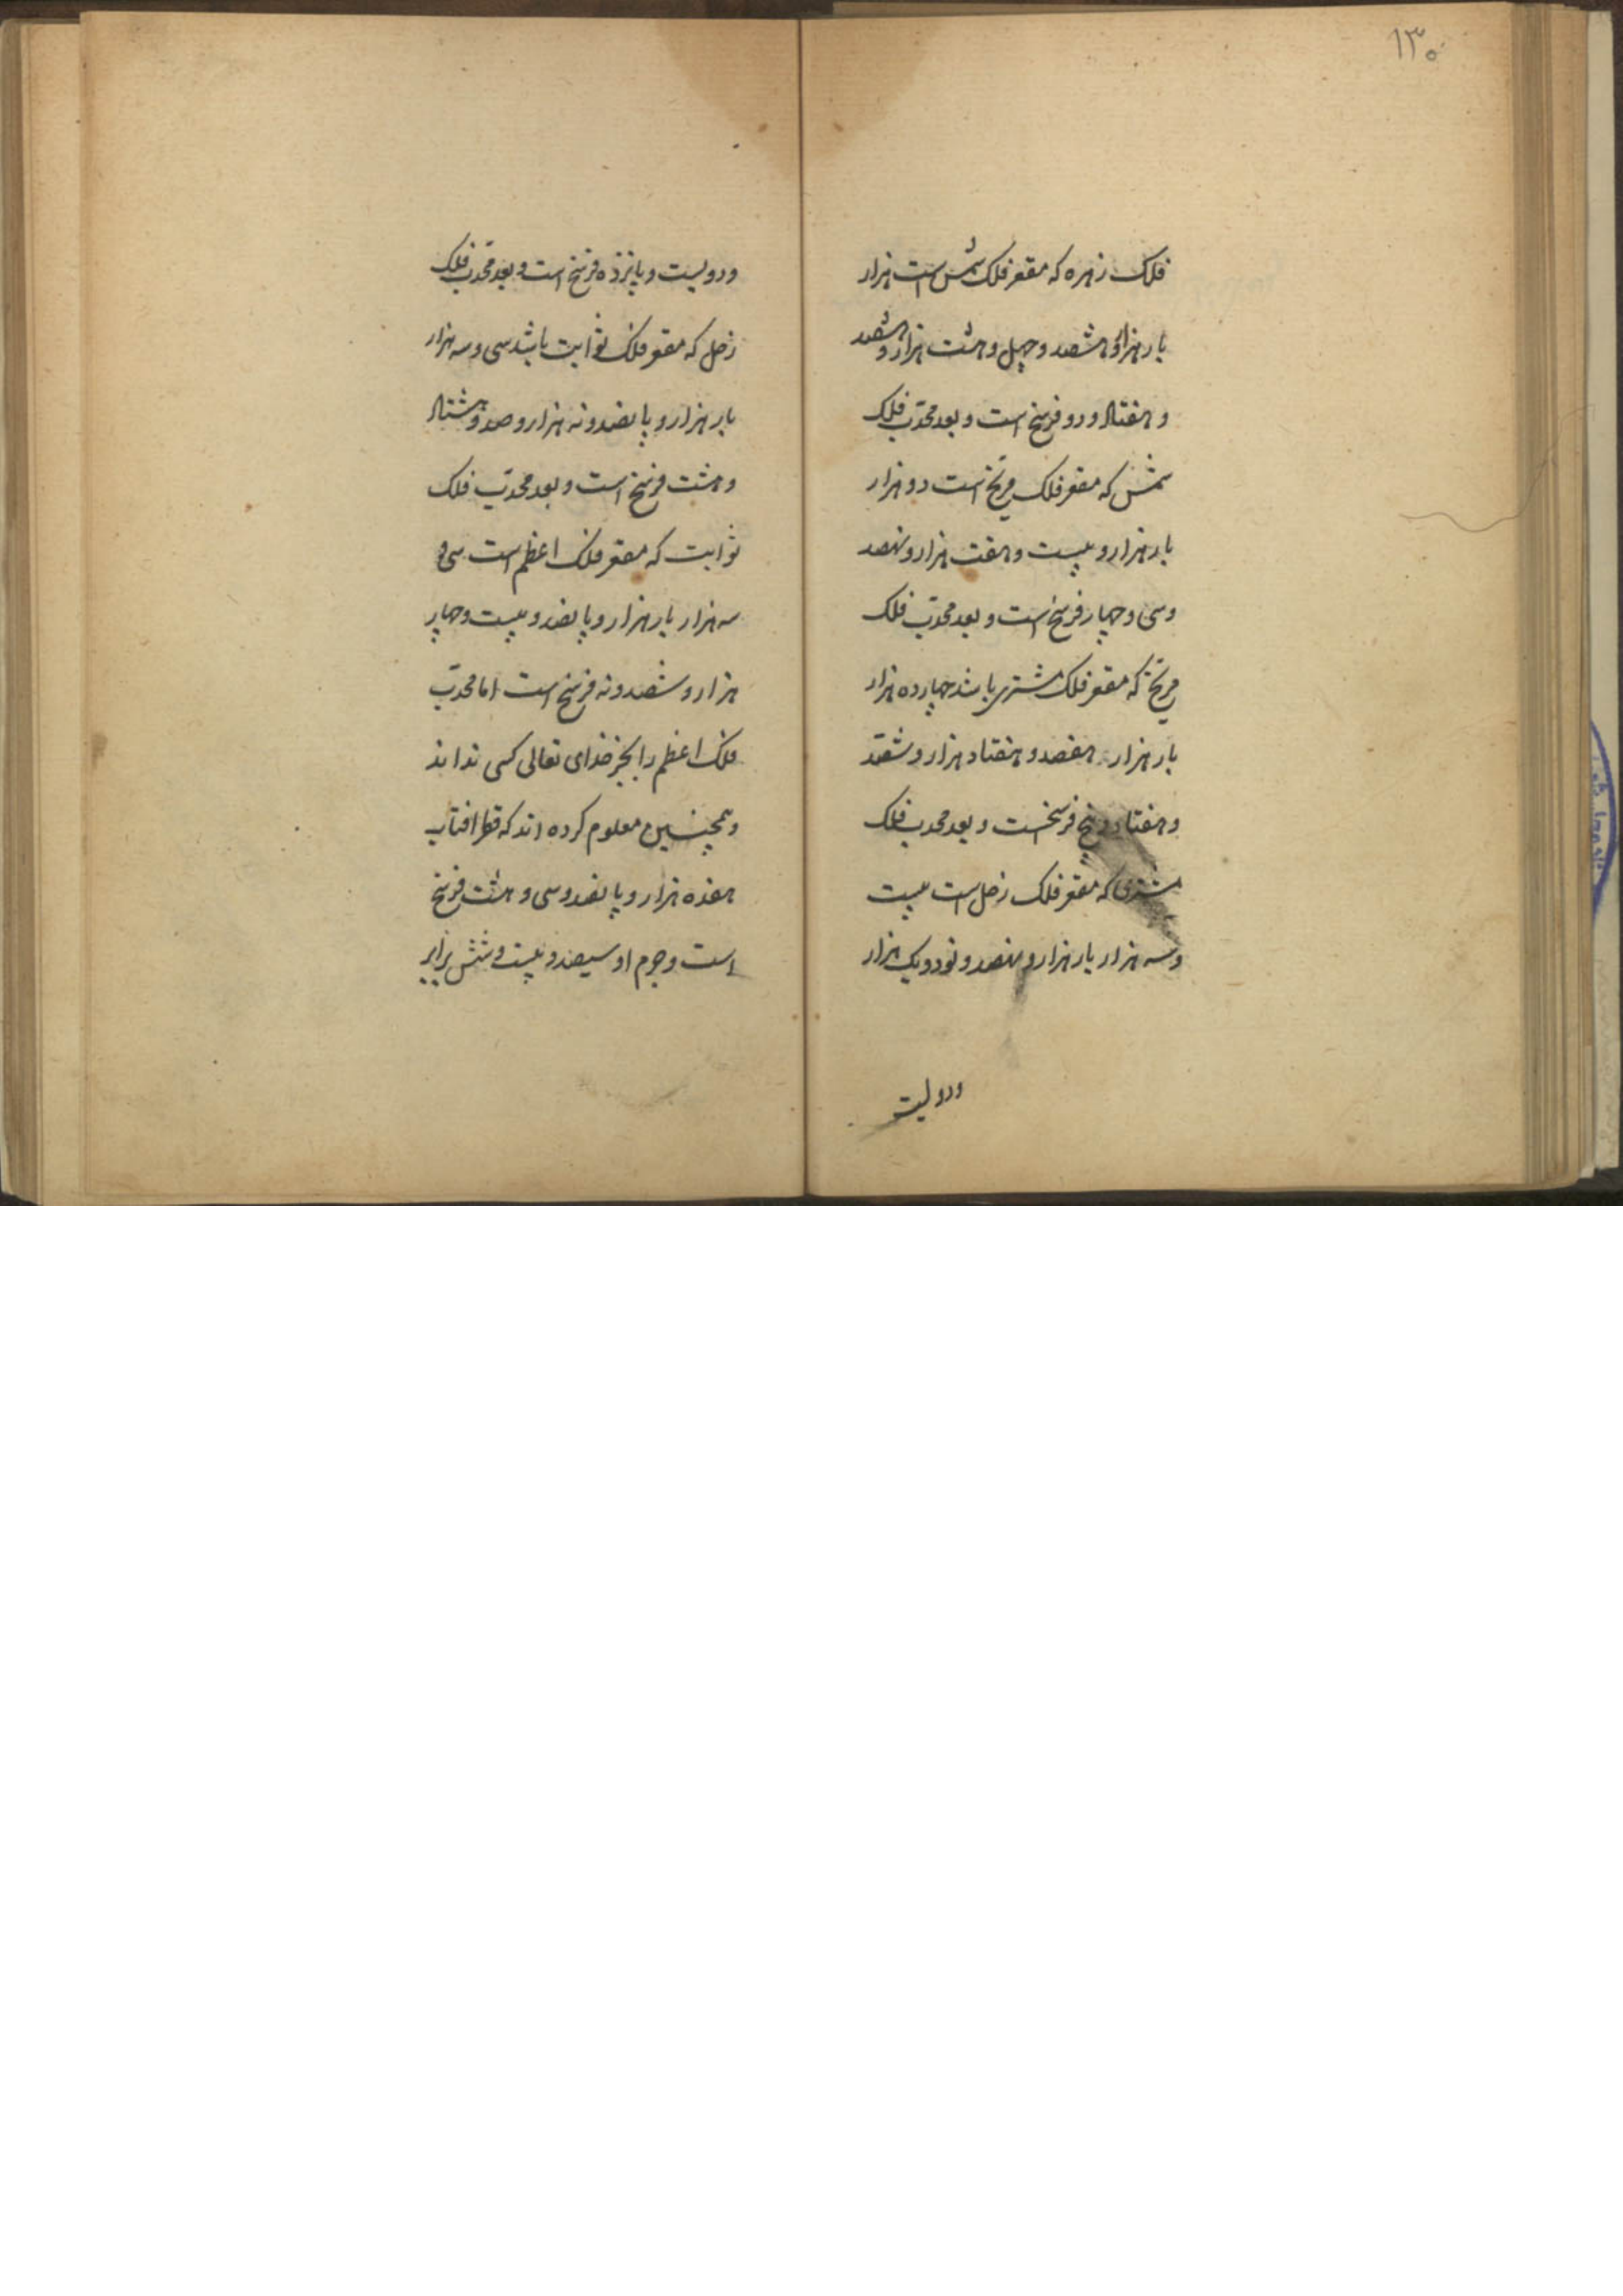 ۱۳۰
فلک زهره که مقعر فلک شمس است هزار
بار هزار و هشصد و چهل و هشت هزار و هشصد
و هفتاد و دو فرسخ است و بعد محدّب فلک
شمس که مقعر فلک مریخ است دو هزار
بار هزار و بیست و هفت هزار و نهصد
و سی و چهار فرسخ است و بعد محدّب فلک
مریخ که مقعر فلک مشتری باشد چهارده هزار
بار هزار و هفصد و هفتاد هزار و ششصد
و هفتاد و پنج فرسخست و بعد محدب فلک
مشتری که مقعر فلک زحل است بیست
و سه هزار بار هزار و نهصد و نود و یک هزار
و دویست
و دویست و پانزده فرسخ است و بعد محدّب فلک
زحل که مقعر فلک ثوابت باشد سی و سه هزار
بار هزار و پانصد و نه هزار و صد و هشتاد
و هشت فرسخ است و بعد محدّب فلک
ثوابت که مقعر فلک اعظم است سی و
سه هزار بار هزار و پانصد و بیست و چهار
هزار و ششصد و نه فرسخ است اما محدّب
فلک اعظم را بجز خدای تعالی کسی نداند
و همچنین معلوم کرده اند که قطر افتاب
هفده هزار و پانصد و سی و هشت فرسخ
است و جرم او سیصد و بیست و شش برابر